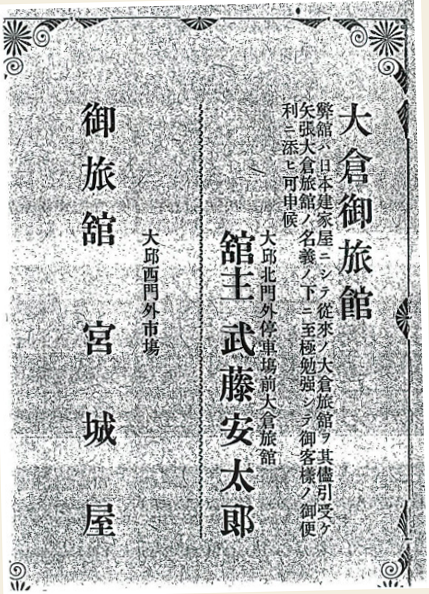 大倉御旅館
弊館ハ日本建家屋ニシテ從來ノ大倉旅館ヲ其儘引受ケ
矢張大倉旅館ノ名義ノ下ニ至極勉强シテ御客樣ノ御便
利ニ添ヒ可申候
大邱北門外停車場前大倉旅館
舘主 武藤安太郎
大邱西門外市場
御旅舘 宮城屋